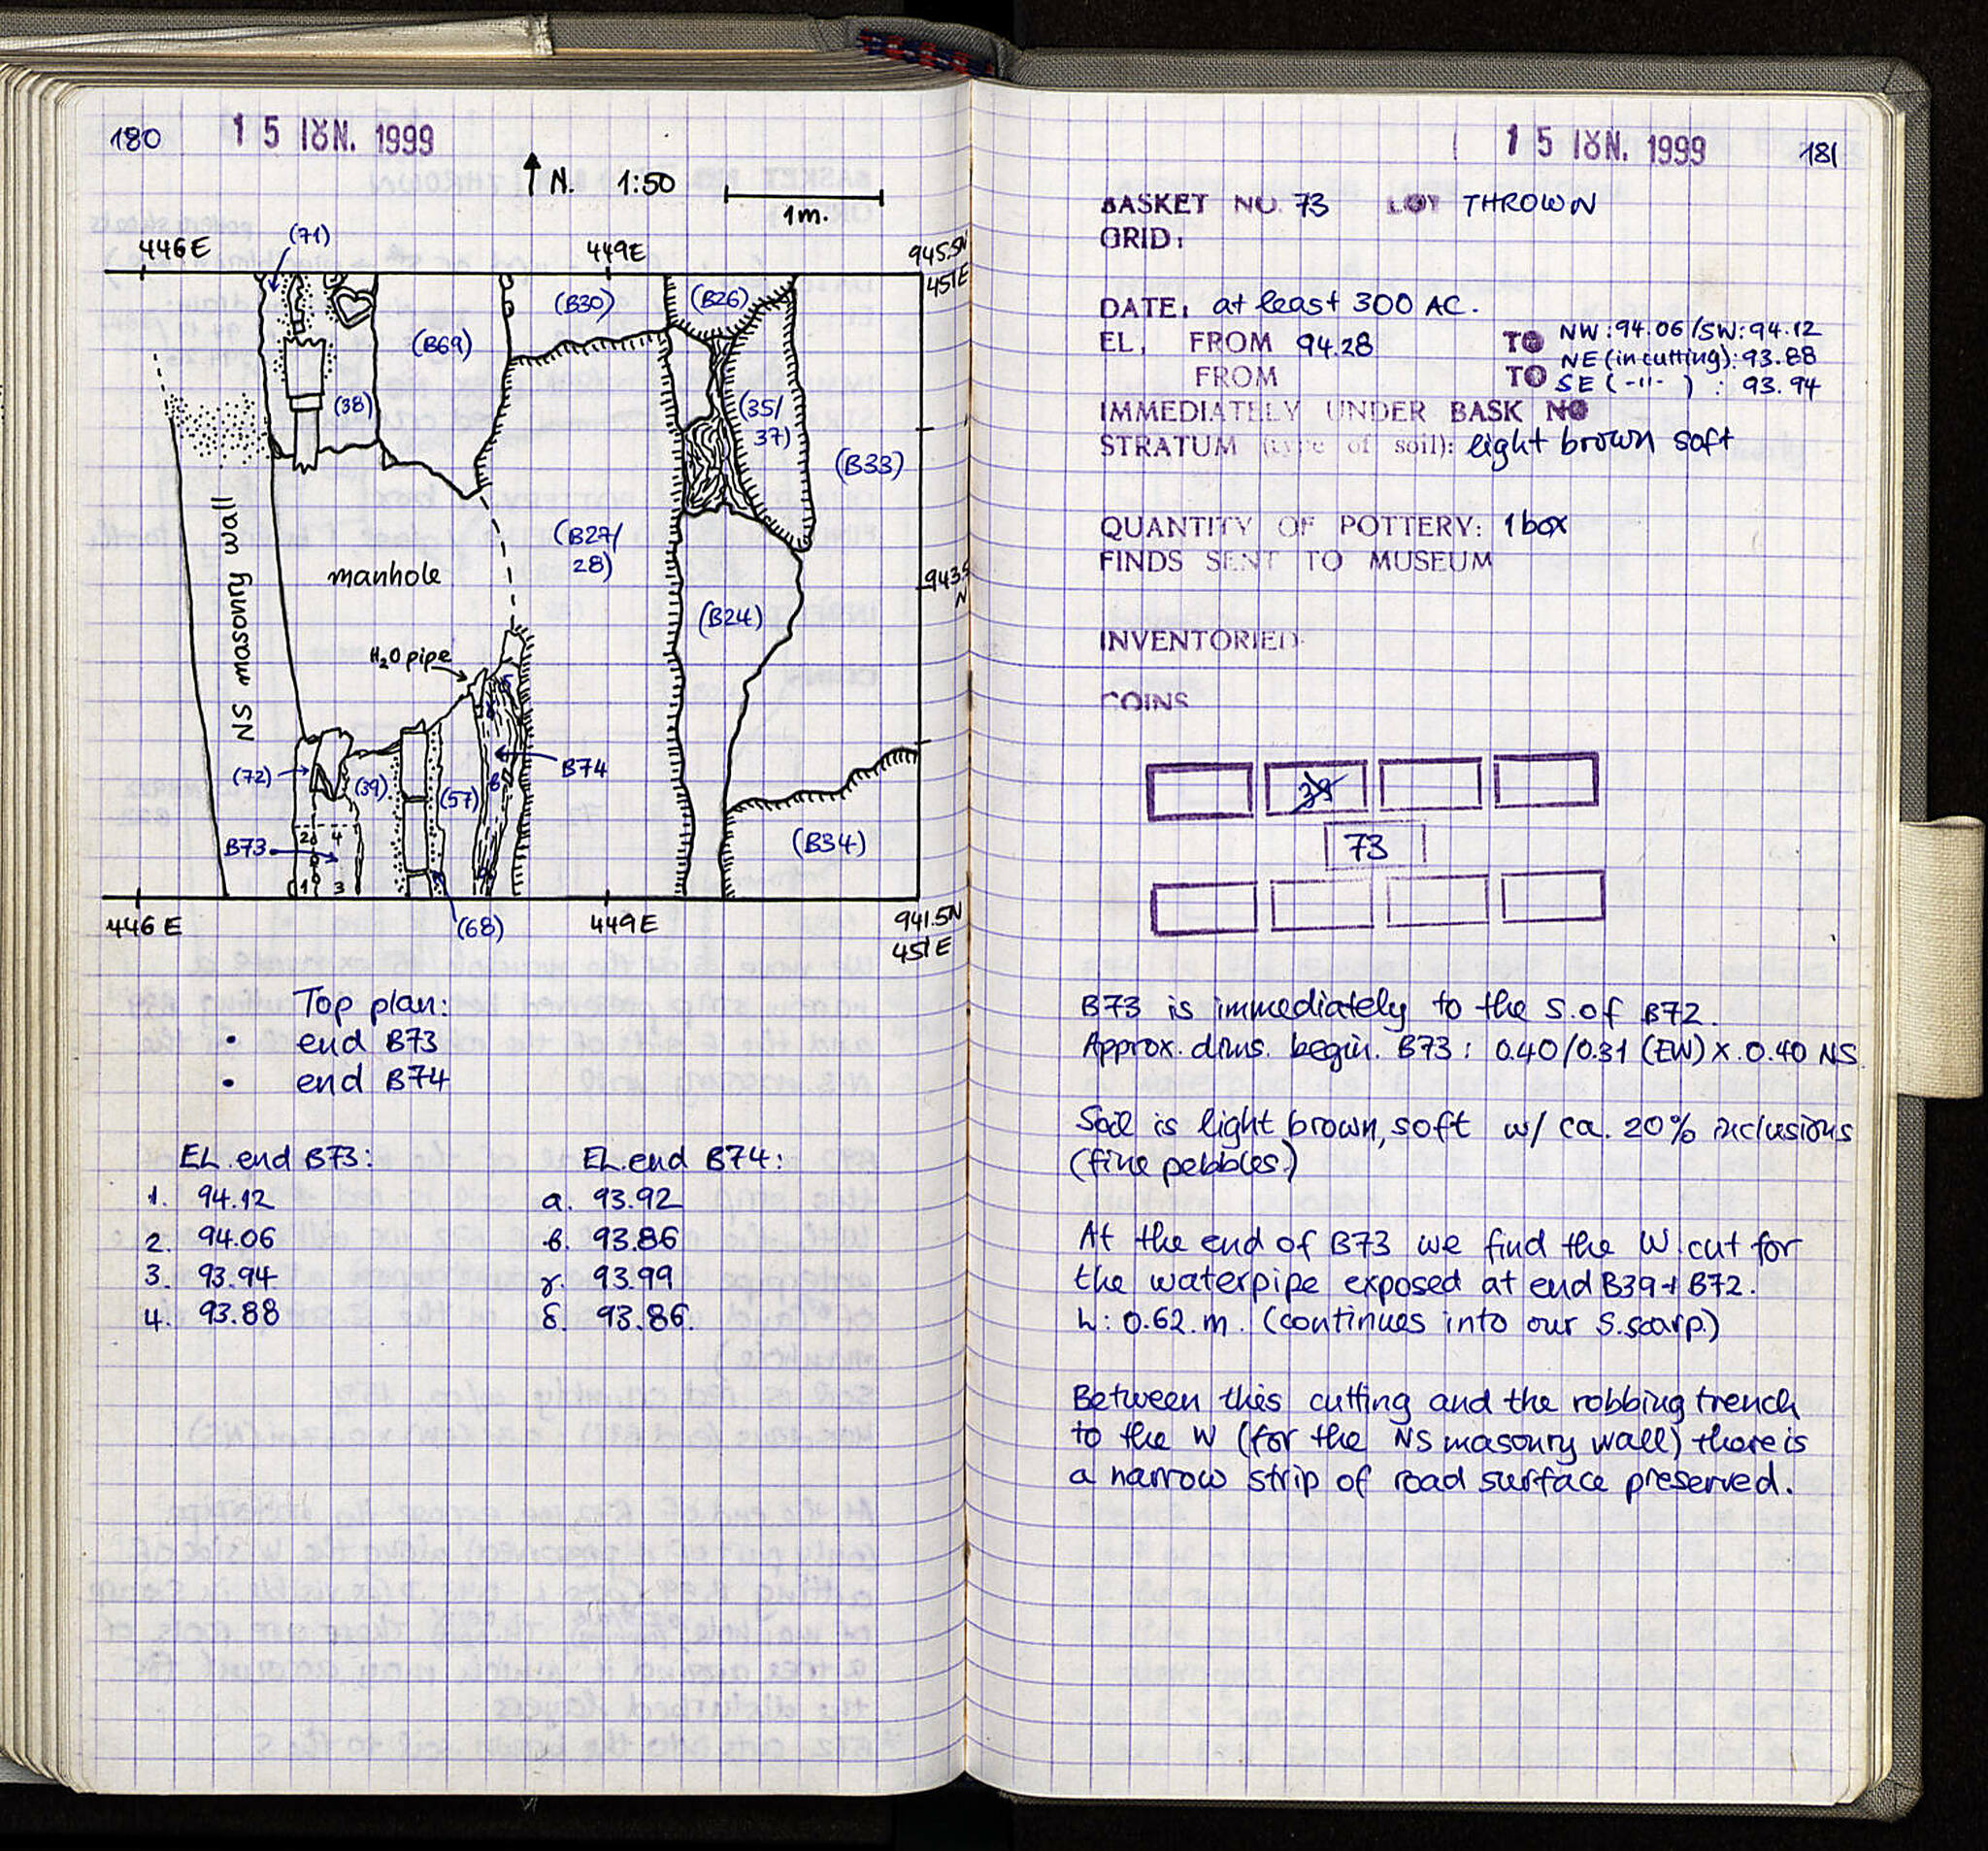 180
1 5 ΙȢΝ. 1999
N. 1:50
1m.
446E
(71)
449E
945.5N
451E
(B30)
(B26)
(B69)
(38)
(35/
37)
(B33)
NS masonry wall
manhole
(B27/
28)
943.5
N
(B24)
H₂O pipe
B74
(72)
(39)
(57)
B73
2 4
1 3
(B34)
446 E
(68)
449E
941.5N
451E
Top plan:
• end B73
• end B74
EL. end B73:
1. 94.12
2. 94.06
3. 93.94
4. 93.88
EL. end B74:
α. 93.92
β. 93.86
γ. 93.99
δ. 93.86.
1 5 ΙȢΝ. 1999
181
BASKET NO. 73 LOT THROWN
GRID:
DATE: at least 300 AC.
EL. FROM 94.28 TO NW: 94.06/SW: 94.12
NE (in cutting): 93.88
FROM TO SE ( -"- ) : 93.94
IMMEDIATELY UNDER BASK NO
STRATUM (type of soil): light brown soft
QUANTITY OF POTTERY: 1 box
FINDS SENT TO MUSEUM
INVENTORIED
COINS
73
B73 is immediately to the S. of B72.
Approx. dims. begin. B73: 0.40/0.31 (EW) x 0.40 NS.
Soil is light brown, soft w/ ca. 20% inclusions
(fine pebbles.)
At the end of B73 we find the W cut for
the waterpipe exposed at end B39 + B72.
L: 0.62.m. (continues into our S. scarp.)
Between this cutting and the robbing trench
to the W (for the NS masonry wall) there is
a narrow strip of road surface preserved.